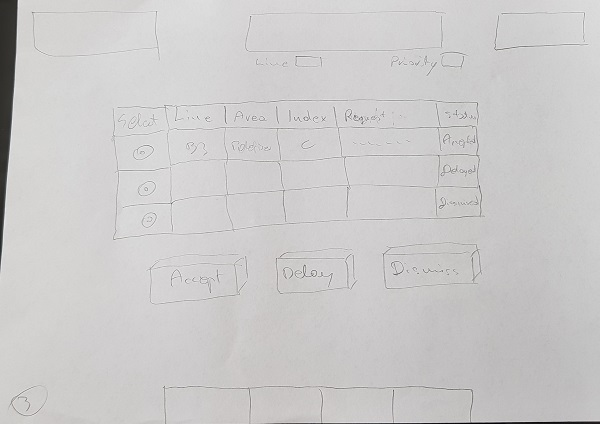 Line Priority
Select Line Area Index Request Status
C Accepted
Delayed
Dismissed
Accept Delay Dismiss
3